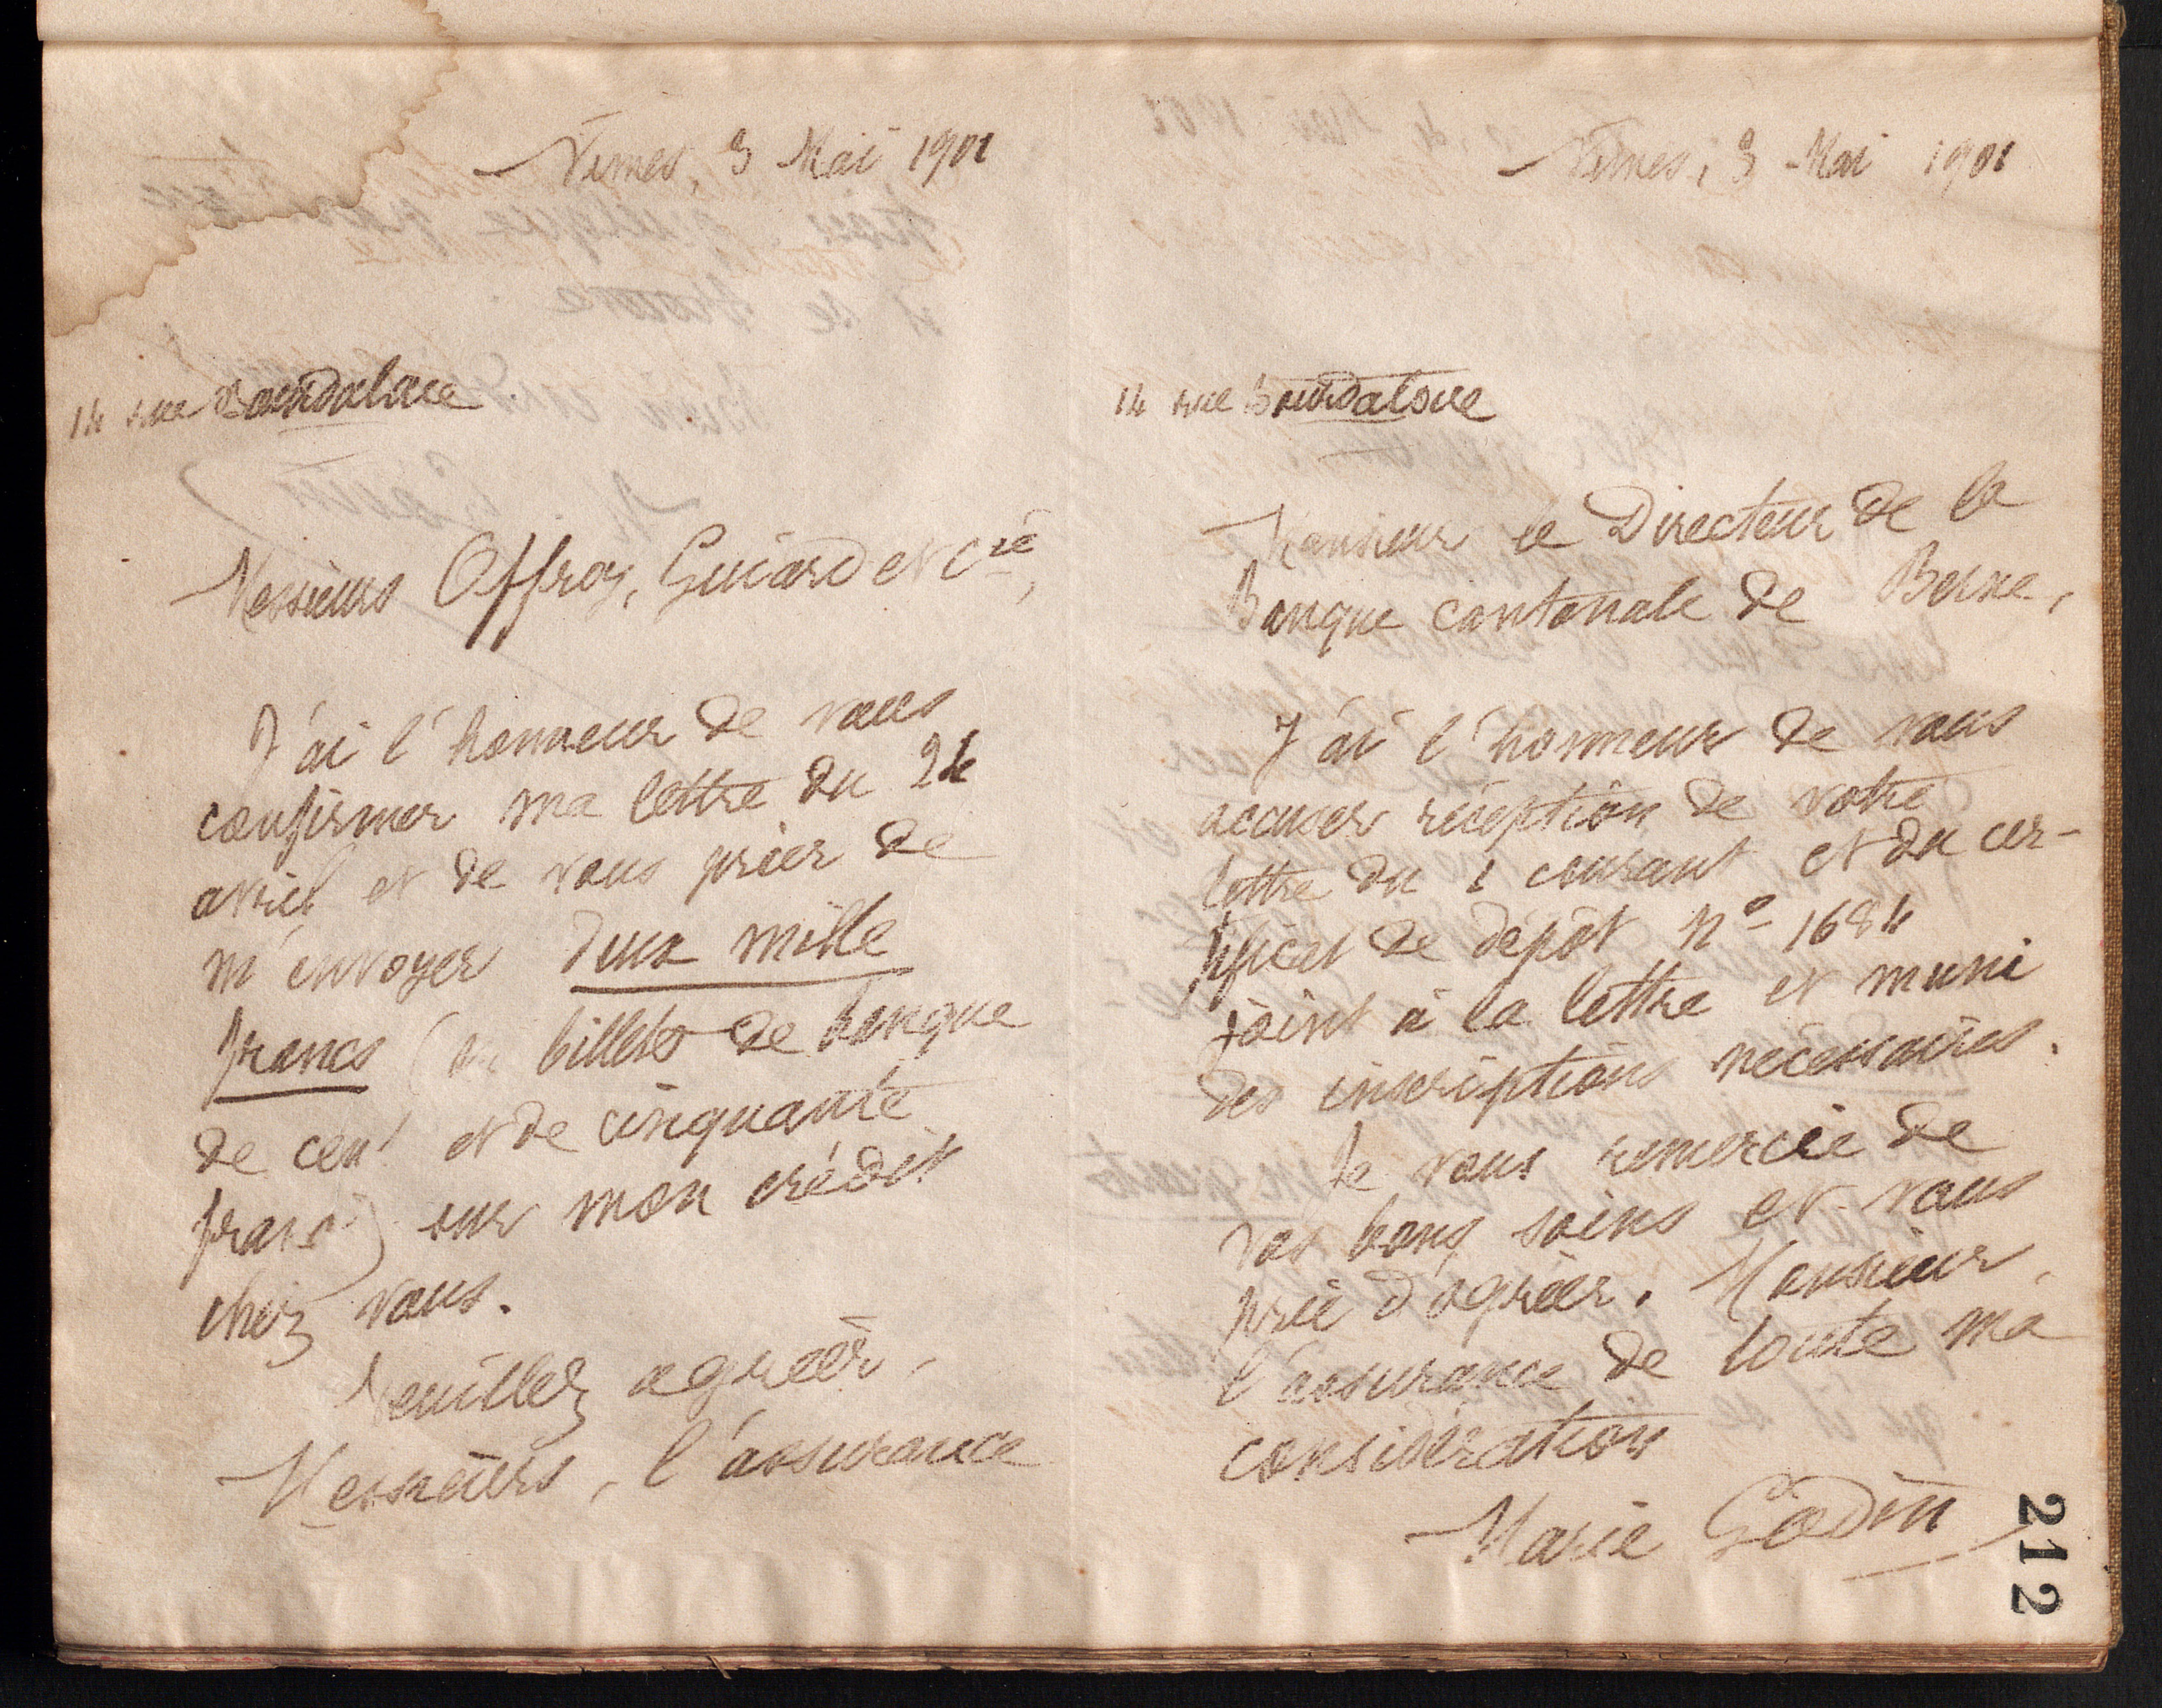 Nimes, 3 Mai 1901
14 rue Bourdaloue
Messieurs Offroy, Guiard et Cie,
J'ai l'honneur de vous
confirmer ma lettre du 24
avril et de vous prier de
m'envoyer deux mille
francs (en billets de banque
de cent et de cinquante
francs) sur mon crédit
chez vous.
Veuillez agréer,
Messieurs, l'assurance
Nimes, 3 Mai 1901
14 rue Bourdaloue
Monsieur le Directeur de la
Banque cantonale de Berne,
J'ai l'honneur de vous
accuser réception de votre
lettre du 1 courant et du cer-
tificat de dépôt No 1684
joint à la lettre et muni
des inscriptions nécessaires.
Je vous remercie de
vos bons soins et vous
prie d'agréer, Monsieur,
l'assurance de toute ma
considération
Marie Godin
212